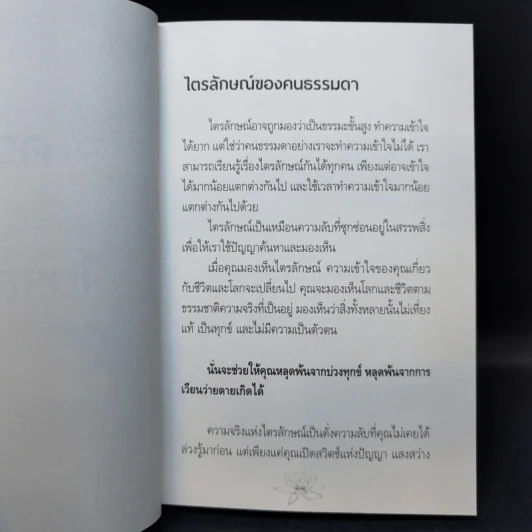 ไตรลักษณ์ของคนธรรมดา
ไตรลักษณ์อาจถูกมองว่าเป็นธรรมะขั้นสูง ทำความเข้าใจ
ได้ยาก แต่ใช่ว่าคนธรรมดาอย่างเราจะทำความเข้าใจไม่ได้ เรา
สามารถเรียนรู้เรื่องไตรลักษณ์กันได้ทุกคน เพียงแต่อาจเข้าใจ
ได้มากน้อยแตกต่างกันไป และใช้เวลาทำความเข้าใจมากน้อย
แตกต่างกันไปด้วย
ไตรลักษณ์เป็นเหมือนความลับที่ซุกซ่อนอยู่ในสรรพสิ่ง
เพื่อให้เราใช้ปัญญาค้นหาและมองเห็น
เมื่อคุณมองเห็นไตรลักษณ์ ความเข้าใจของคุณเกี่ยว
กับชีวิตและโลกจะเปลี่ยนไป คุณจะมองเห็นโลกและชีวิตตาม
ธรรมชาติความจริงที่เป็นอยู่ มองเห็นว่าสิ่งทั้งหลายนั้นไม่เที่ยง
แท้ เป็นทุกข์ และไม่มีความเป็นตัวตน
นั่นจะช่วยให้คุณหลุดพ้นจากบ่วงทุกข์ หลุดพ้นจากการ
เวียนว่ายตายเกิดได้
ความจริงแห่งไตรลักษณ์เป็นดั่งความลับที่คุณไม่เคยได้
ล่วงรู้มาก่อน แต่เพียงแค่คุณเปิดสวิตช์แห่งปัญญา แสงสว่าง